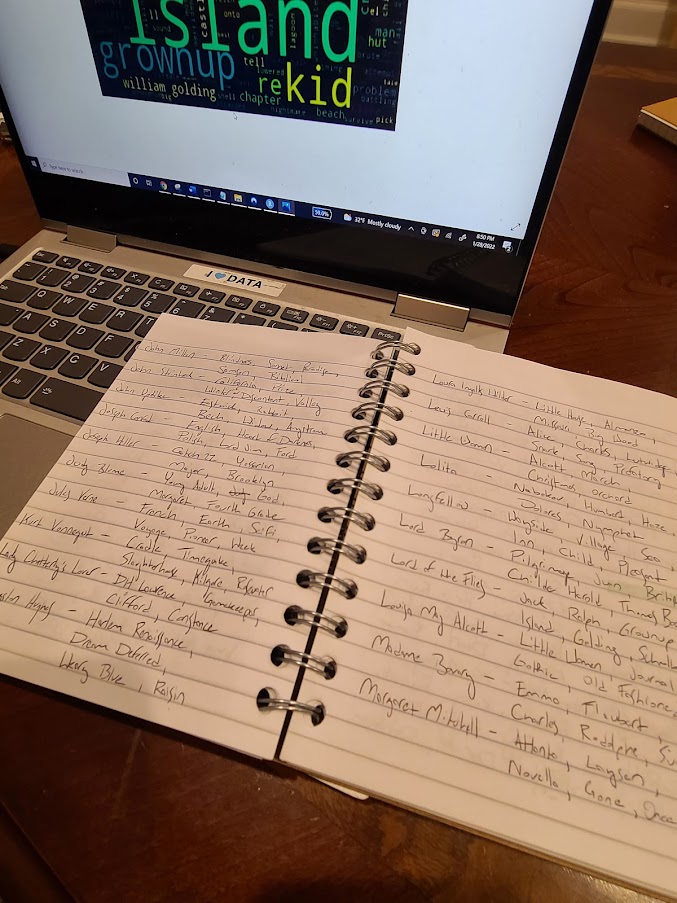 island
grownup
tell
lowered
re
kid
man
hut
william golding
chapter
beach
problem
battling
nightmare
survive
pick
onto
lagoon
Type here to search
98.0%
32°F Mostly cloudy
8:50 PM
1/28/2022
J DATA
John Milton - Blindness, Sonnet, Paradise,
Samson, Biblical
John Steinbeck - California, Prize
Winter, Discontent, Valley
John Updike - Eastwick, Rabbit
Bech, Angstrom
Joseph Conrad - English, Heart of Darkness,
Polish, Lord Jim, Ford
Joseph Heller - Catch 22, Yossarian
Major, Brooklyn
Judy Blume - Young Adult, God,
Margaret, Fourth Grade
Jules Verne - French, Earth, SciFi,
Voyage, Pioneer, Week
Kurt Vonnegut - Cradle, Timequake,
Slaughterhouse, Kilgore,
Lady Chatterly's Lover - DH Lawrence, Gamekeeper,
Clifford, Constance
Hughes - Harlem Renaissance,
Dream Deferred,
Weary Blue, Raisin
Laura Ingalls Wilder - Little House, Almanzo,
Missouri, Big Wood
Lewis Carroll - Alice, Charles, Lutwidge
Snark, Song,
Little Women - Alcott, March
Christmas, Orchard
Lolita - Nabokov, Humbert, Haze
Dolores, Nymphet
Longfellow - Wayside, Village, Sea,
Inn, Child, Pleasant
Lord Byron - Pilgrimage, Juan, British
Childe Harold, Thomas
Lord of the Flies - Jack, Ralph, Grownup
Island, Golding,
Louisa May Alcott - Little Women, Journal
Gothic, Old Fashione
Madame Bovary - Emma, Flaubert,
Charles, Rodolphe,
Margaret Mitchell - Atlanta, Laysen,
Novella, Gone, Once